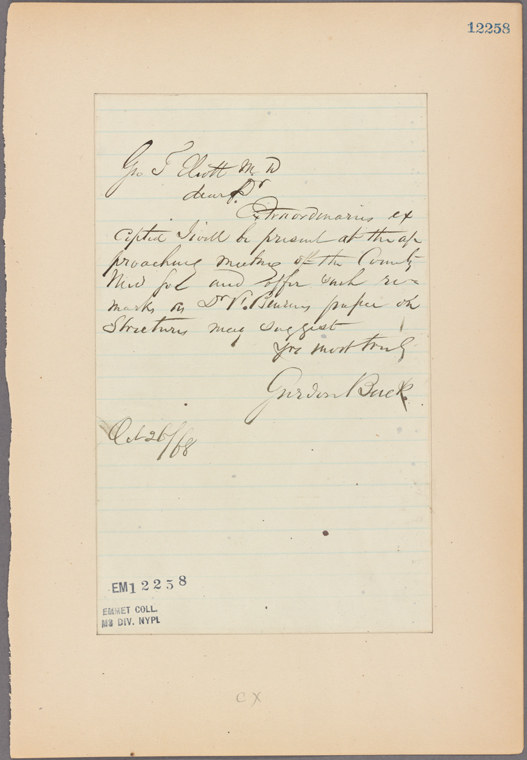 12258
Geo T Elliott M D
dear Dr
Extraordinaries ex
cepted I will be present at the ap
proaching meeting of the County
Med Soc and offer such re=
marks as Dr V. Burens paper on
Strictures may suggest
yrs most truly
Gurdon Buck
Oct 26/68
EM12258
EMMET COLL.
MS DIV. NYPL
C X